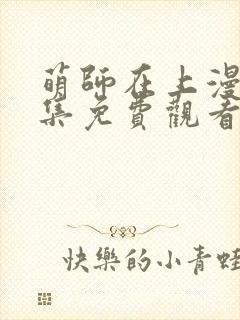 萌師在上漫
集免費觀看
快樂的小青蛙